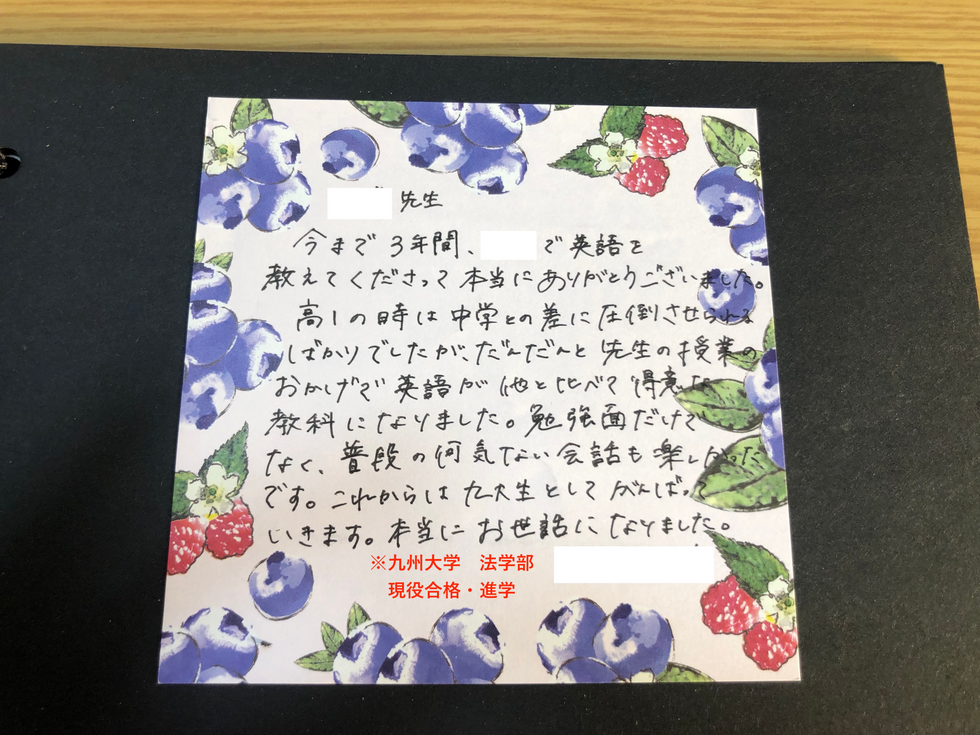 先生
今まで3年間、で英語を
教えてくださって本当にありがとうございました。
高1の時は中学との差に圧倒させられる
ばかりでしたが、だんだんと先生の授業の
おかげで英語が他と比べて得意な
教科になりました。勉強面だけで
なく、普段の何気ない会話も楽しかった
です。これからは九大生としてがんばって
いきます。本当にお世話になりました。
※九州大学 法学部
現役合格・進学